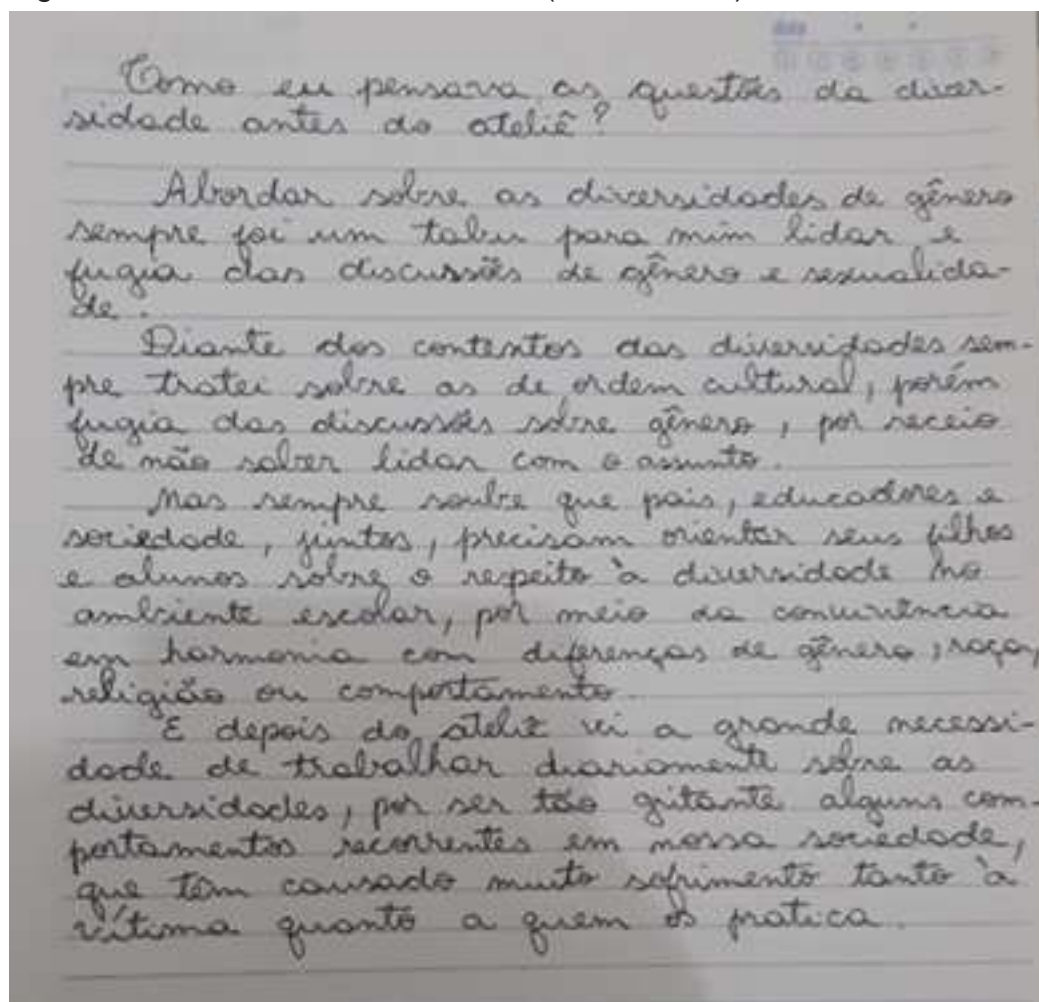 Como eu pensava as questões da diver-
sidade antes do ateliê?
Abordar sobre as diversidades de gênero
sempre foi um tabu para mim lidar e
fugia das discussões de gênero e sexualida-
de.
Diante dos contextos das diversidades sem-
pre tratei sobre as de ordem cultural, porém
fugia das discussões sobre gênero, por receio
de não saber lidar com o assunto.
Mas sempre soube que pais, educadores e
sociedade, juntos, precisam orientar seus filhos
e alunos sobre o respeito à diversidade no
ambiente escolar, por meio da convivência
em harmonia com diferenças de gênero, raça,
religião ou comportamento.
E depois do ateliê vi a grande necessi-
dade de trabalhar diariamente sobre as
diversidades, por ser tão gritante alguns com-
portamentos recorrentes em nossa sociedade,
que têm causado muito sofrimento tanto à
vítima quanto a quem os pratica.